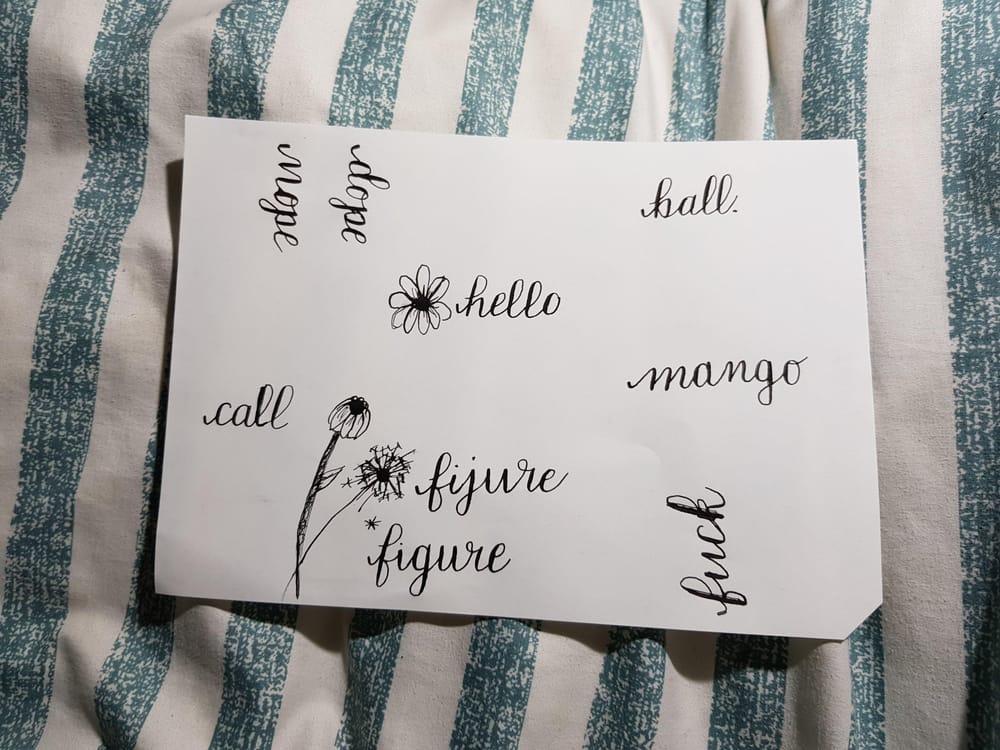 nope
dope
ball.
hello
mango
call
fijure
figure
fuck